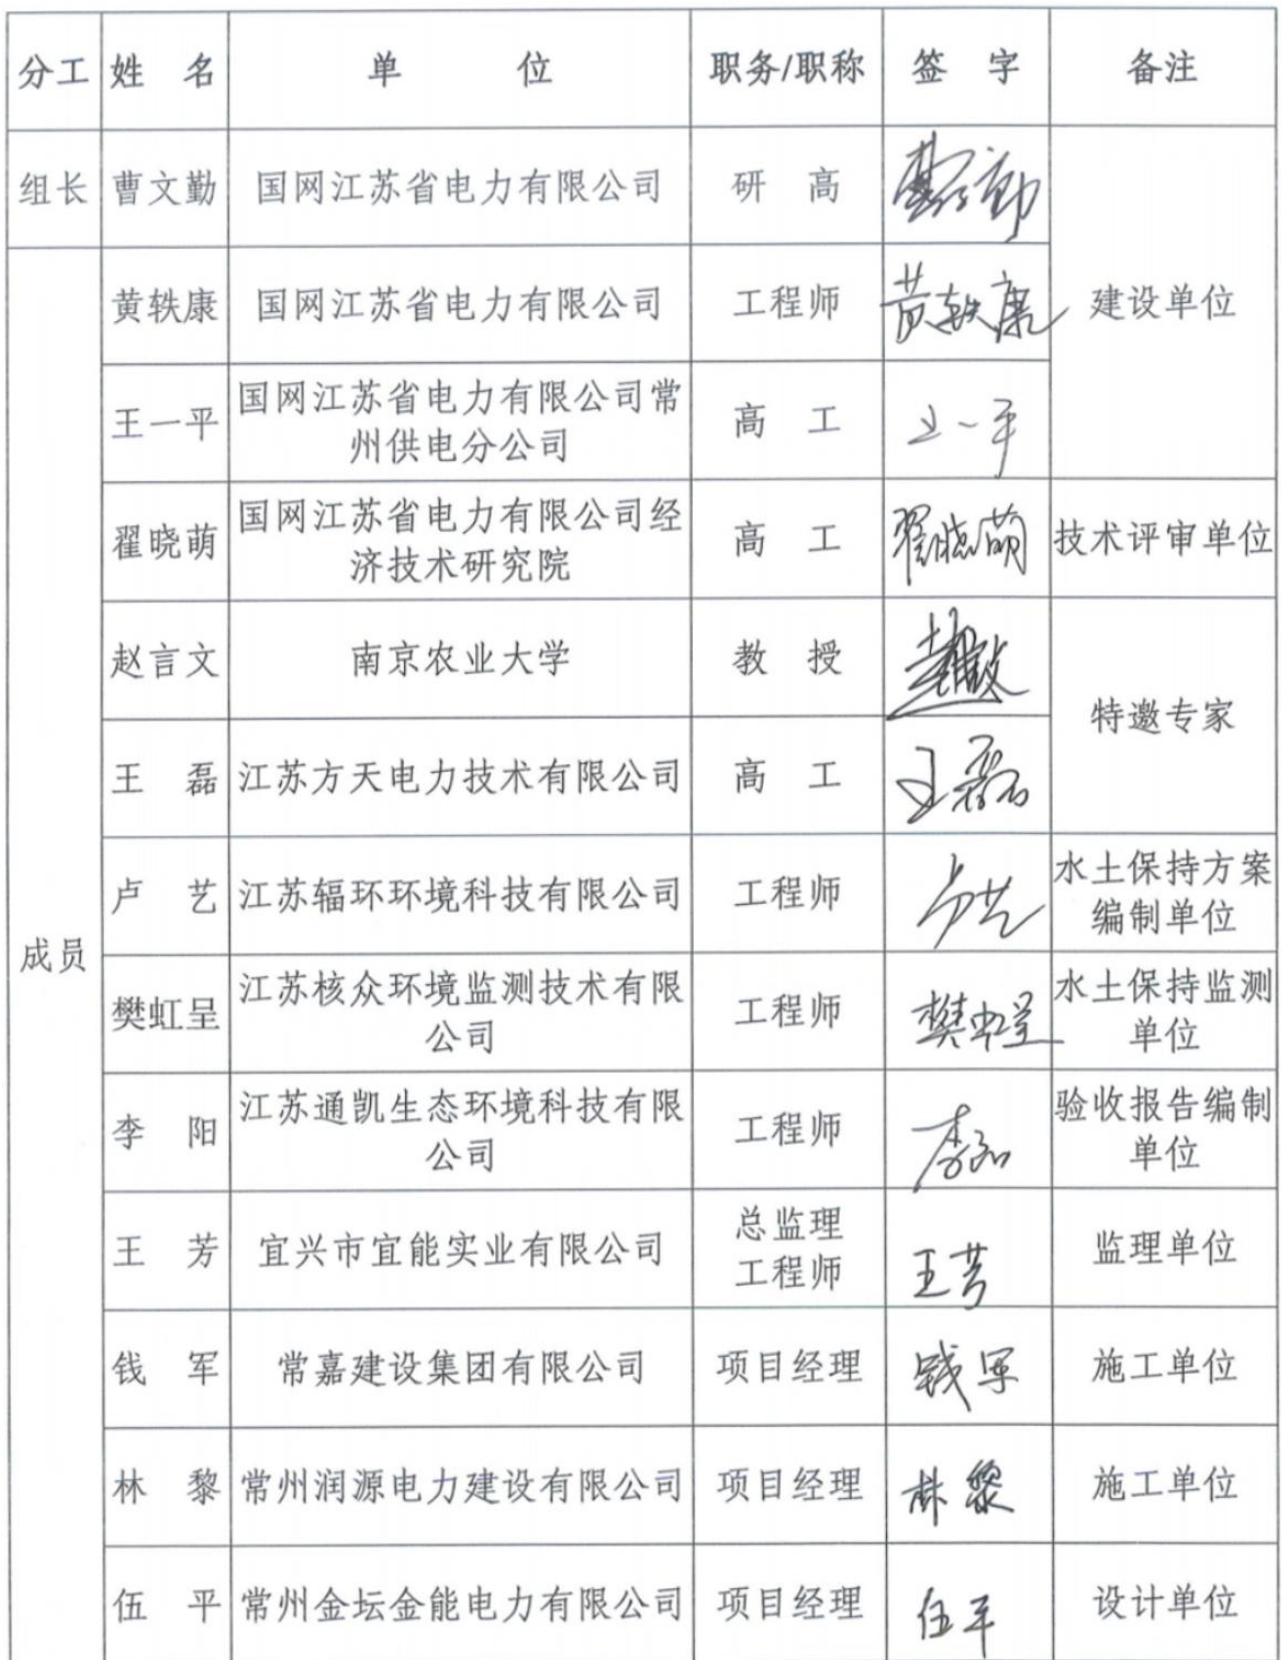 分工 姓 名 单 位 职务/职称 签 字 备注
组长 曹文勤 国网江苏省电力有限公司 研 高
黄轶康 国网江苏省电力有限公司 工程师 黄轶康 建设单位
王一平 国网江苏省电力有限公司常
州供电分公司 高 工 王一平
翟晓萌 国网江苏省电力有限公司经
济技术研究院 高 工 翟晓萌 技术评审单位
赵言文 南京农业大学 教 授
特邀专家
王 磊 江苏方天电力技术有限公司 高 工 王磊
卢 艺 江苏辐环环境科技有限公司 工程师 卢艺 水土保持方案
编制单位
成员
樊虹呈 江苏核众环境监测技术有限
公司 工程师 樊虹呈 水土保持监测
单位
李 阳 江苏通凯生态环境科技有限
公司 工程师 李阳 验收报告编制
单位
王 芳 宜兴市宜能实业有限公司 总监理
工程师 王芳 监理单位
钱 军 常嘉建设集团有限公司 项目经理 钱军 施工单位
林 黎 常州润源电力建设有限公司 项目经理 林黎 施工单位
伍 平 常州金坛金能电力有限公司 项目经理 伍平 设计单位